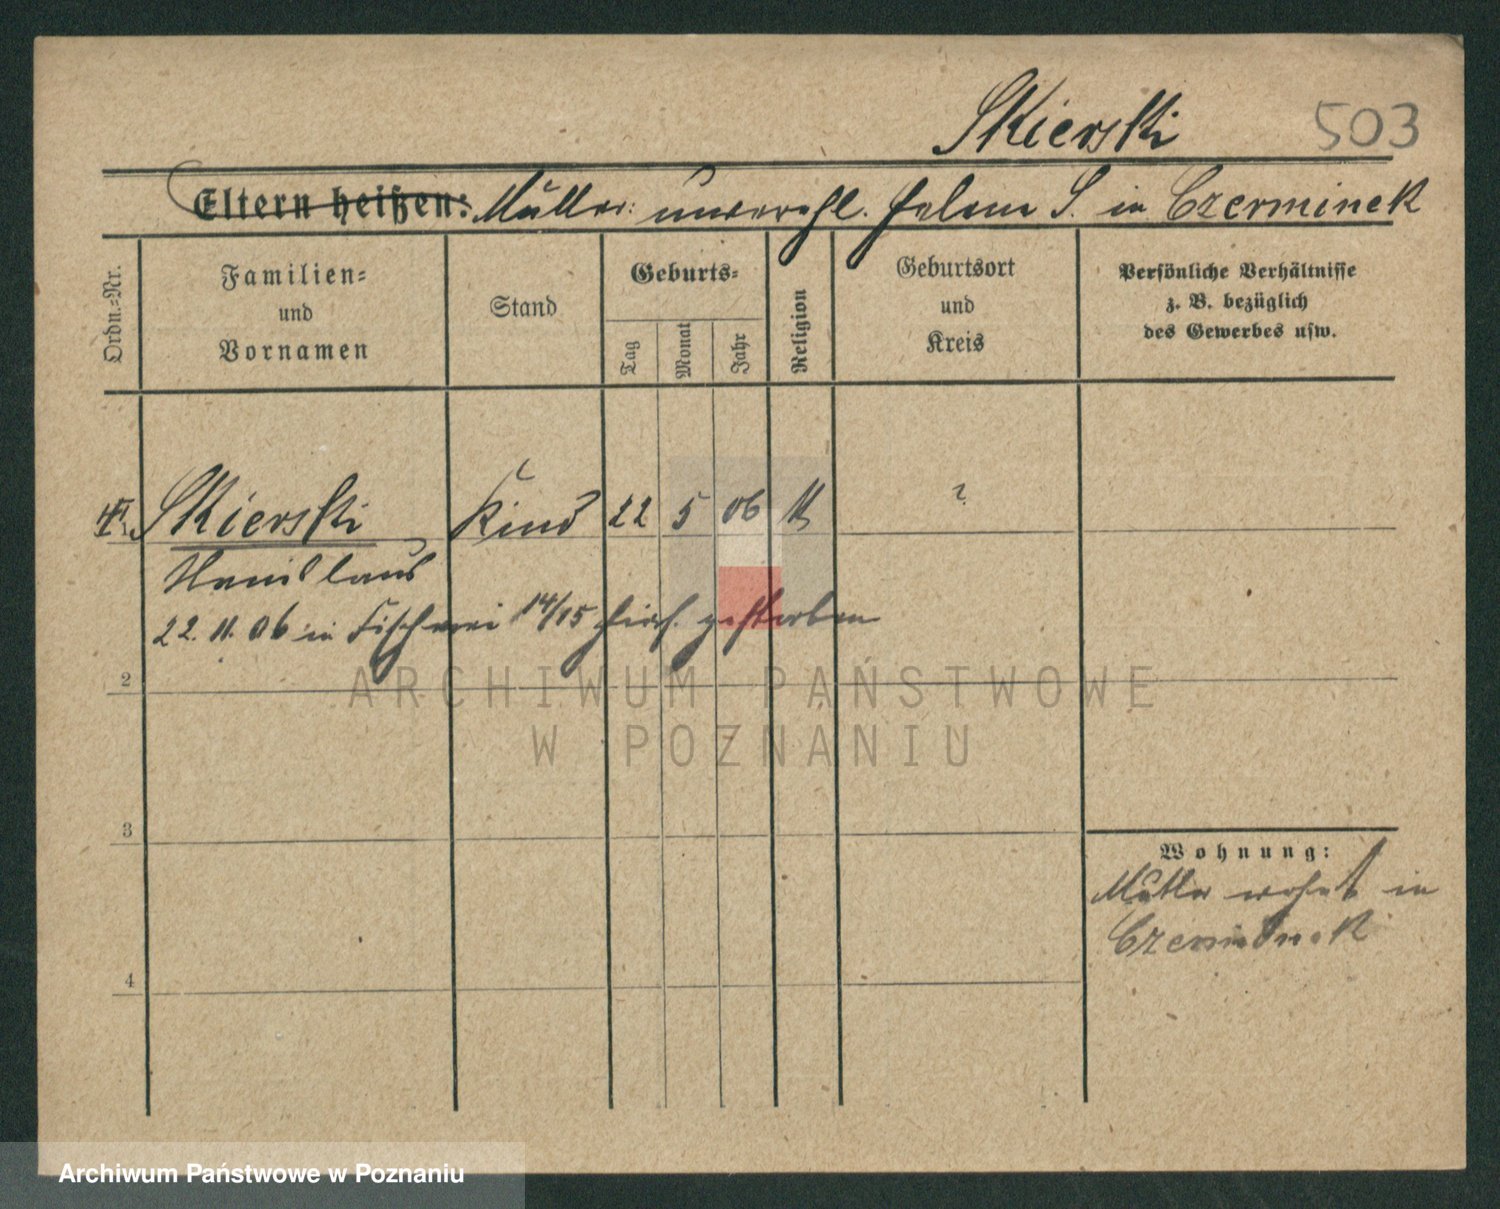 Skierski 503
Eltern heißen: Mutter: unverehl. Helene S. in Czerminek
Ordn.=Nr.
Familien=
und
Vornamen
Stand
Geburts=
Tag
Monat
Jahr
Religion
Geburtsort
und
Kreis
Persönliche Verhältnisse
z. B. bezüglich
des Gewerbes usw.
Skierski Kind 22 5 06 K ?
Stanislaus
22. 11. 06 in Fischerei 14/15 hier gestorben
2
ARCHIWUM PAŃSTWOWE
W POZNANIU
3
Wohnung:
Mutter wohnt in
Czerminek
4
Archiwum Państwowe w Poznaniu